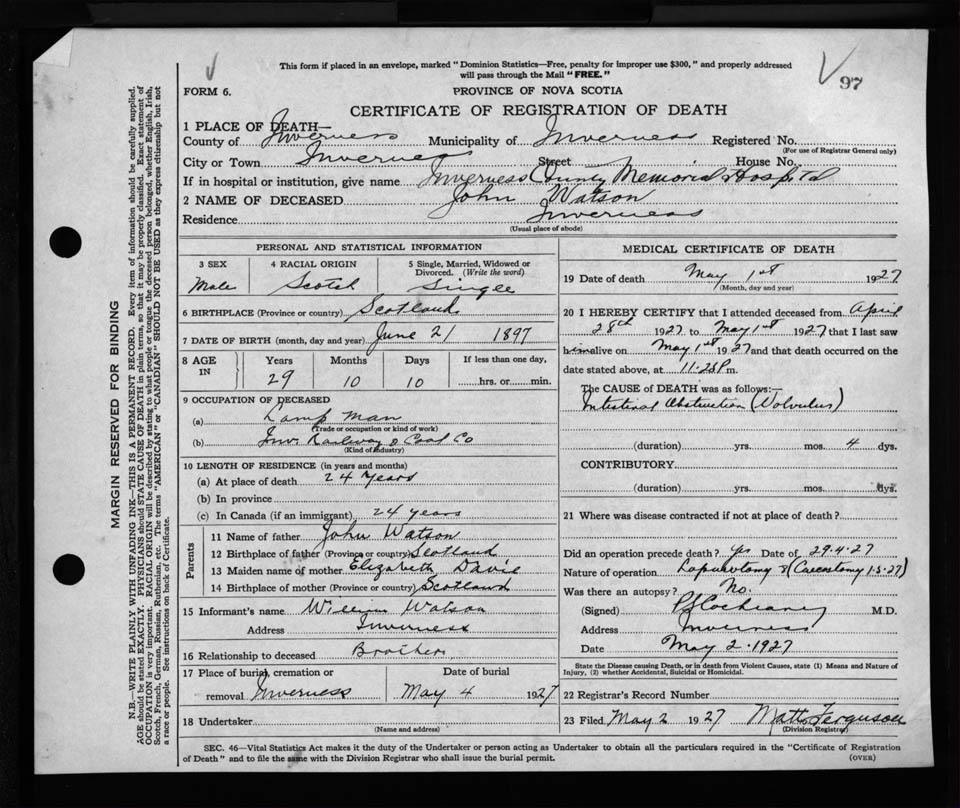 This form if placed in an envelope, marked "Dominion Statistics—Free, penalty for improper use $300," and properly addressed
will pass through the Mail "FREE."
97
FORM 6.
PROVINCE OF NOVA SCOTIA
CERTIFICATE OF REGISTRATION OF DEATH
1 PLACE OF DEATH—
County of Inverness Municipality of Inverness Registered No.
(For use of Registrar General only)
City or Town Inverness Street House No.
If in hospital or institution, give name Inverness County Memorial Hospital
2 NAME OF DECEASED John Watson
Residence Inverness
(Usual place of abode)
PERSONAL AND STATISTICAL INFORMATION
3 SEX
Male
4 RACIAL ORIGIN
Scotch
5 Single, Married, Widowed or
Divorced. (Write the word)
Single
6 BIRTHPLACE (Province or country) Scotland
7 DATE OF BIRTH (month, day and year) June 21 1897
8 AGE
IN
Years Months Days If less than one day,
29 10 10 hrs. or min.
9 OCCUPATION OF DECEASED
(a) Lamp Man
(Trade or occupation or kind of work)
(b) Inv. Railway & Coal Co
(Kind of industry)
10 LENGTH OF RESIDENCE (in years and months)
(a) At place of death 24 years
(b) In province
(c) In Canada (if an immigrant) 24 years
Parents
11 Name of father John Watson
12 Birthplace of father (Province or country) Scotland
13 Maiden name of mother Elizabeth Davie
14 Birthplace of mother (Province or country) Scotland
15 Informant's name William Watson
Address Inverness
16 Relationship to deceased Brother
17 Place of burial, cremation or Date of burial
removal Inverness May 4 1927
18 Undertaker
(Name and address)
MEDICAL CERTIFICATE OF DEATH
19 Date of death May 1st 1927
(Month, day and year)
20 I HEREBY CERTIFY that I attended deceased from April
28th 1927 to May 1st 1927 that I last saw
him alive on May 1st 1927 and that death occurred on the
date stated above, at 11.25 P m.
The CAUSE of DEATH was as follows:—
Intestinal Obstruction (Volvulus)
(duration) yrs. mos. 4 dys.
CONTRIBUTORY
(duration) yrs. mos. dys.
21 Where was disease contracted if not at place of death?
Did an operation precede death? Yes Date of 29.4.27
Nature of operation Laparotomy & (Caecotomy 1.5.27)
Was there an autopsy? No.
(Signed) Cochrane M.D.
Address Inverness
Date May 2. 1927
State the Disease causing Death, or in death from Violent Causes, state (1) Means and Nature of
Injury, (2) whether Accidental, Suicidal or Homicidal.
22 Registrar's Record Number
23 Filed May 2 1927 Matt. Ferguson
(Division Registrar)
SEC. 46—Vital Statistics Act makes it the duty of the Undertaker or person acting as Undertaker to obtain all the particulars required in the "Certificate of Registration
of Death" and to file the same with the Division Registrar who shall issue the burial permit.
(OVER)
MARGIN RESERVED FOR BINDING
N.B. WRITE PLAINLY WITH UNFADING INK—THIS IS A PERMANENT RECORD. Every item of information should be carefully supplied.
AGE should be stated EXACTLY. PHYSICIANS should STATE CAUSE OF DEATH in plain terms, so that it may be properly classified. Exact statement of
OCCUPATION is very important. RACIAL ORIGIN will be described by stating to what people or tongue the deceased person belonged, whether English, Irish,
Scotch, French, German, Russian, Ruthenian, etc. The terms "AMERICAN" or "CANADIAN" SHOULD NOT BE USED as they express citizenship but not
a race or people. See instructions on back of Certificate.